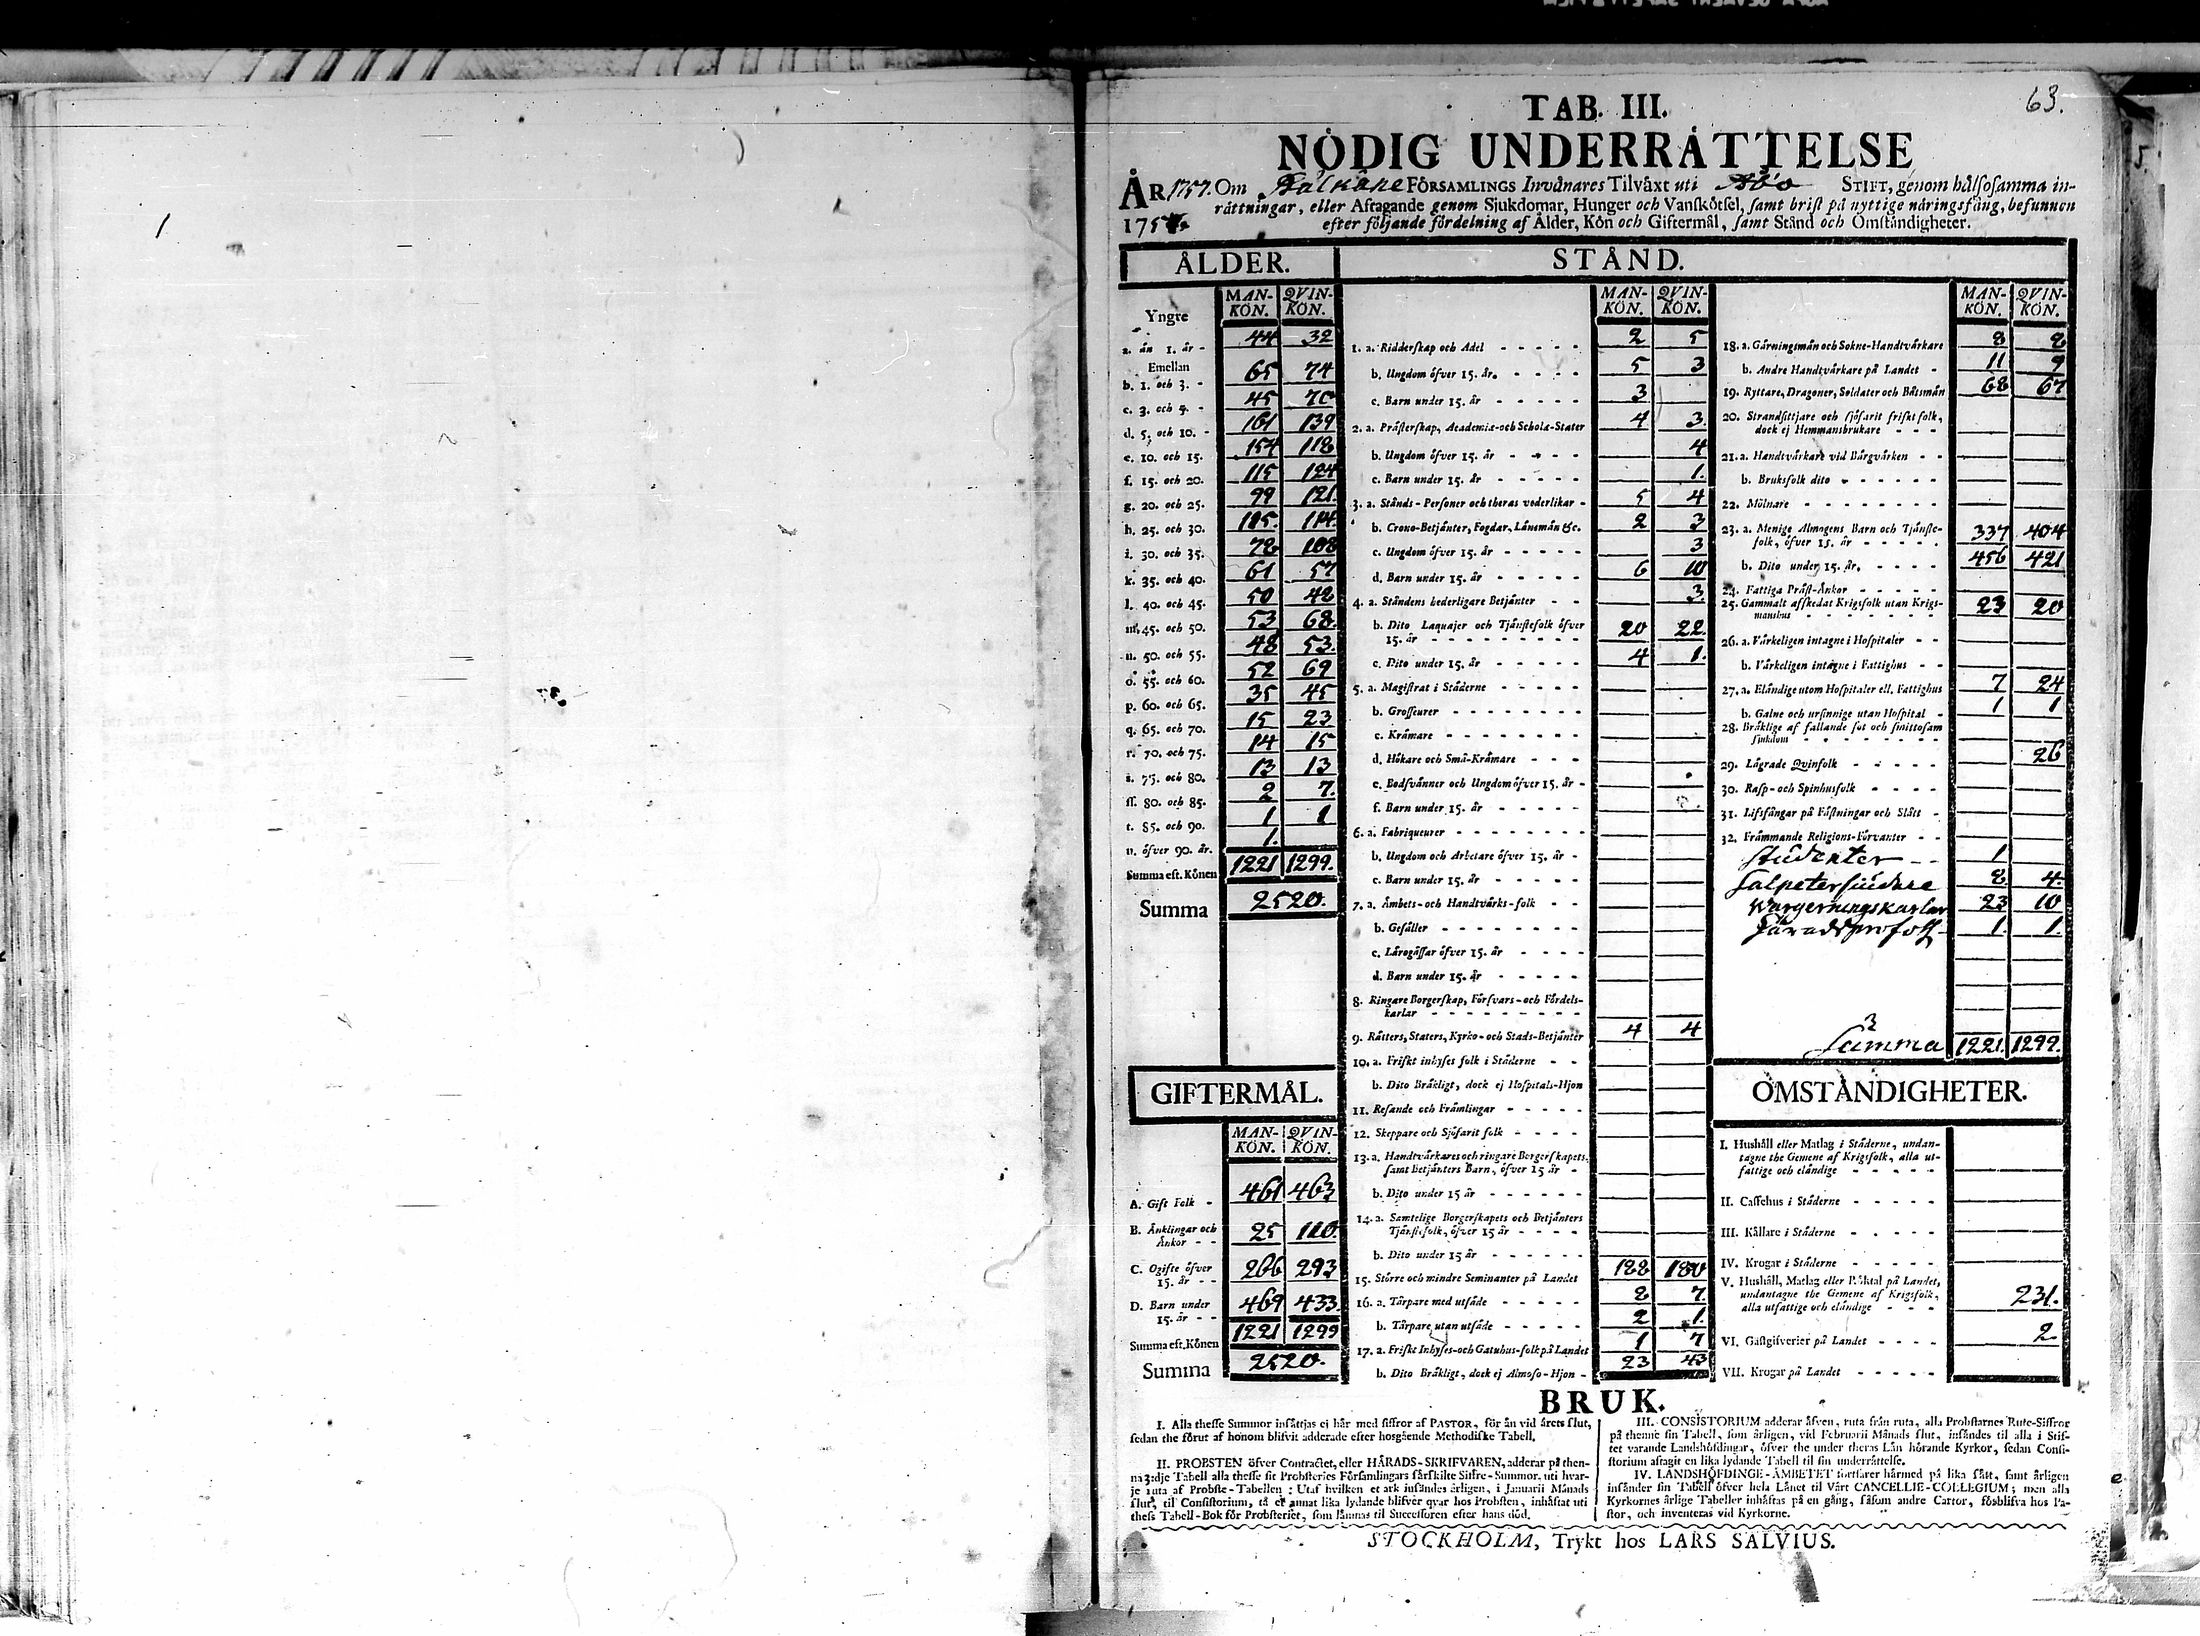 63.
TAB. III.
NÖDIG UNDERRÄTTELSE
ÅR 1757. Om Pälkäne FÖRSAMLINGS Invånares Tilväxt uti Åbo STIFT, genom hälsosamma in-
rättningar, eller Aftagande genom Sjukdomar, Hunger och Vanskötsel, samt brist på nyttige näringsfång, befunnen
175 efter följande fördelning af Ålder, Kön och Giftermål, samt Stånd och Omständigheter.
ÅLDER.
MAN-KÖN. QVIN-KÖN.
Yngre
a. än 1. år - 44 32
Emellan
b. 1. och 3. - 65 74
c. 3. och 5. - 45 70
d. 5. och 10. - 161 139
e. 10. och 15. 154 118
f. 15. och 20. 115 124
g. 20. och 25. 99 121.
h. 25. och 30. 114.
i. 30. och 35. 72 108
k. 35. och 40. 61 57
l. 40. och 45. 50 42
m. 45. och 50. 53 68.
n. 50. och 55. 48 53.
o. 55. och 60. 52 69
p. 60. och 65. 35 45
q. 65. och 70. 15 23
r. 70. och 75. 14 15
s. 75. och 80. 13 13
ss. 80. och 85. 2 7.
t. 85. och 90. 1 1
u. öfver 90. år. 1.
Summa eft. Könen 1221 1299.
Summa 2520.
GIFTERMÅL.
MAN-KÖN. QVIN-KÖN.
A. Gift Folk - 461 463
B. Änklingar och
Änkor - - 25 110.
C. Ogifte öfver
15. år - - 266 293
D. Barn under
15. år - - 469 433.
Summa eft. Könen 1221 1299
Summa 2520.
STÅND.
MAN-KÖN. QVIN-KÖN.
1. a. Ridderskap och Adel - - - - - 2 5
b. Ungdom öfver 15. år. - - - - 5 3
c. Barn under 15. år - - - - - 3
2. a. Prästerskap, Academiæ-och Scholæ-Stater 4 3.
b. Ungdom öfver 15. år - - - - 4
c. Barn under 15. år - - - - - 1.
3. a. Stånds-Personer och theras vederlikar - 5 4
b. Crono-Betjänter, Fogdar, Länsmän &c. 2 3
c. Ungdom öfver 15. år - - - - - 3
d. Barn under 15. år - - - - - 6 10
4. a. Ståndens hederligare Betjänter - - 3.
b. Dito Laquajer och Tjänstefolk öfver
15. år - - - - - - - - - 20 22.
c. Dito under 15. år - - - - - - 4 1.
5. a. Magistrat i Städerne - - - - -
b. Grosseurer - - - - - - - -
c. Krämare - - - - - - - -
d. Hökare och Små-Krämare - - -
e. Bodsvänner och Ungdom öfver 15. år -
f. Barn under 15. år - - - - -
6. a. Fabriqueurer - - - - - - - -
b. Ungdom och Arbetare öfver 15. år -
c. Barn under 15. år - - - - -
7. a. Ämbets-och Handtvärks-folk - -
b. Gesäller - - - - - - - -
c. Lärogässar öfver 15. år - - - -
d. Barn under 15. år - - - - -
8. Ringare Borgerskap, Försvars-och Fördels-
karlar - - - - - - - - -
9. Rätters, Staters, Kyrko-och Stads-Betjänter 4 4
10. a. Friskt inhyses folk i Städerne - -
b. Dito Bräkligt, dock ej Hospitals-Hjon
11. Resande och Främlingar - - - - -
12. Skeppare och Sjöfarit folk - - - -
13. a. Handtvärkares och ringare Borgerskapets,
samt Betjänters Barn, öfver 15 år -
b. Dito under 15 år - - - - - -
14. a. Samtelige Borgerskapets och Betjänters
Tjänstefolk, öfver 15 år - - - - -
b. Dito under 15 år - - - - - -
15. Större och mindre Seminanter på Landet 188 180
16. a. Torpare med utsäde - - - - - 8 7.
b. Torpare utan utsäde - - - - - 2 1.
17. a. Friskt Inhyses-och Gatuhus-folk på Landet 1 7
b. Dito Bräkligt, dock ej Almoso-Hjon - 23 43
MAN-KÖN. QVIN-KÖN.
18. a. Gärningsmän och Sokne-Handtvärkare 8 8
b. Andre Handtvärkare på Landet - 11 9
19. Ryttare, Dragoner, Soldater och Båtsmän 68 67
20. Strandsittjare och sjöfarit friskt folk,
dock ej Hemmansbrukare - - -
21. a. Handtvärkare vid Bärgvärken - -
b. Bruksfolk dito - - - - - -
22. Mölnare - - - - - - - -
23. a. Menige Almogens Barn och Tjänste-
folk, öfver 15. år - - - - - 337 404
b. Dito under 15. år. - - - - - 456 421
24. Fattiga Präst-Änkor - - - - -
25. Gammalt afskedat Krigsfolk utan Krigs-
manshus - - - - - - - - 23 20
26. a. Värkeligen intagne i Hospitaler - -
b. Värkeligen intagne i Fattighus - -
27. a. Eländige utom Hospitaler ell. Fattighus 7 24
b. Galne och ursinnige utan Hospital - 1 1
28. Bräklige af fallande sot och smittosam
sjukdom - - - - - - - -
29. Lägrade Qvinfolk - - - - - 26
30. Rasp-och Spinhusfolk - - - -
31. Lifsfångar på Fästningar och Slått -
32. Främmande Religions-Förvanter - -
Studenter - - 1
Salpetersiudare 8 4.
Wargeringskarlar 23 10
Häradsprofoss 1. 1.
Summa 1221. 1299.
OMSTÄNDIGHETER.
I. Hushåll eller Matlag i Städerne, undan-
tagne the Gemene af Krigsfolk, alla ut-
fattige och eländige - - - - -
II. Caffehus i Städerne - - - - -
III. Källare i Städerne - - - - -
IV. Krogar i Städerne - - - - -
V. Hushåll, Matlag eller Röktal på Landet,
undantagne the Gemene af Krigsfolk,
alla utfattige och eländige - - - 231.
VI. Gästgifverier på Landet - - - - 2
VII. Krogar på Landet - - - - -
BRUK.
I. Alla thesse Summor insättjas ej här med siffror af PASTOR, för än vid årets slut,
sedan the förut af honom blifvit adderade efter hosgående Methodiske Tabell.
II. PROBSTEN öfver Contractet, eller HÄRADS-SKRIFVAREN, adderar på then-
na 3:dje Tabell alla thesse sit Probsteries Församlingars särskilte Siffre-Summor, uti hvar-
je ruta af Probste-Tabellen: Utaf hvilken et ark insändes årligen, i Januarii Månads
slut, til Consistorium, tå et annat lika lydande blifver qvar hos Probsten, inhäftat uti
thess Tabell-Bok för Probsteriet, som lämnas til Successoren efter hans död.
III. CONSISTORIUM adderar äfven, ruta från ruta, alla Probstarnes Rute-Siffror
på thenne sin Tabell, som årligen, vid Februarii Månads slut, insändes til alla i Stif-
tet varande Landshöfdingar, öfver the under theras Län hörande Kyrkor, sedan Consi-
storium aftagit en lika lydande Tabell til sin underrättelse.
IV. LANDSHÖFDINGE-ÄMBETET fortfarer härmed på lika sätt, samt årligen
insänder sin Tabell öfver hela Länet til Vårt CANCELLIE-COLLEGIUM; men alla
Kyrkornes årlige Tabeller inhäftas på en gång, såsom andre Cartor, förblifva hos Pa-
stor, och inventeras vid Kyrkorne.
STOCKHOLM, Trykt hos LARS SALVIUS.